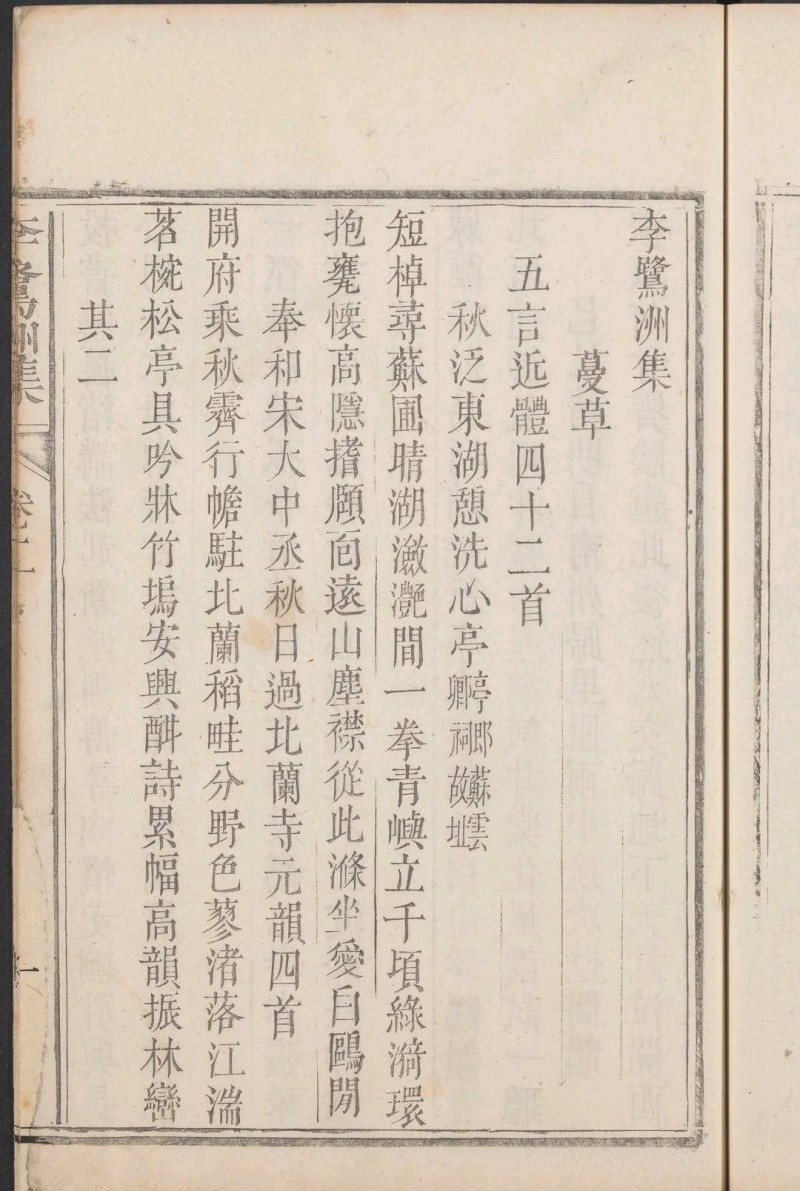 李鷺洲集
蔓草
五言近體四十二首
秋泛東湖憩洗心亭亭郎蘇雲卿祠故址
短棹尋蘇圃晴湖瀲灔間一拳青嶼立千頃綠漪環
抱甕懷高隱搘頤面遠山塵襟從此滌坐愛白鷗閒
奉和宋大中丞秋日過北蘭寺元韻四首
開府乘秋霽行幨駐北蘭稻畦分野色蓼渚落江湍
茗椀松亭具吟牀竹塢安興酣詩累幅高韻振林巒
其二
李鷺洲集 卷二 一